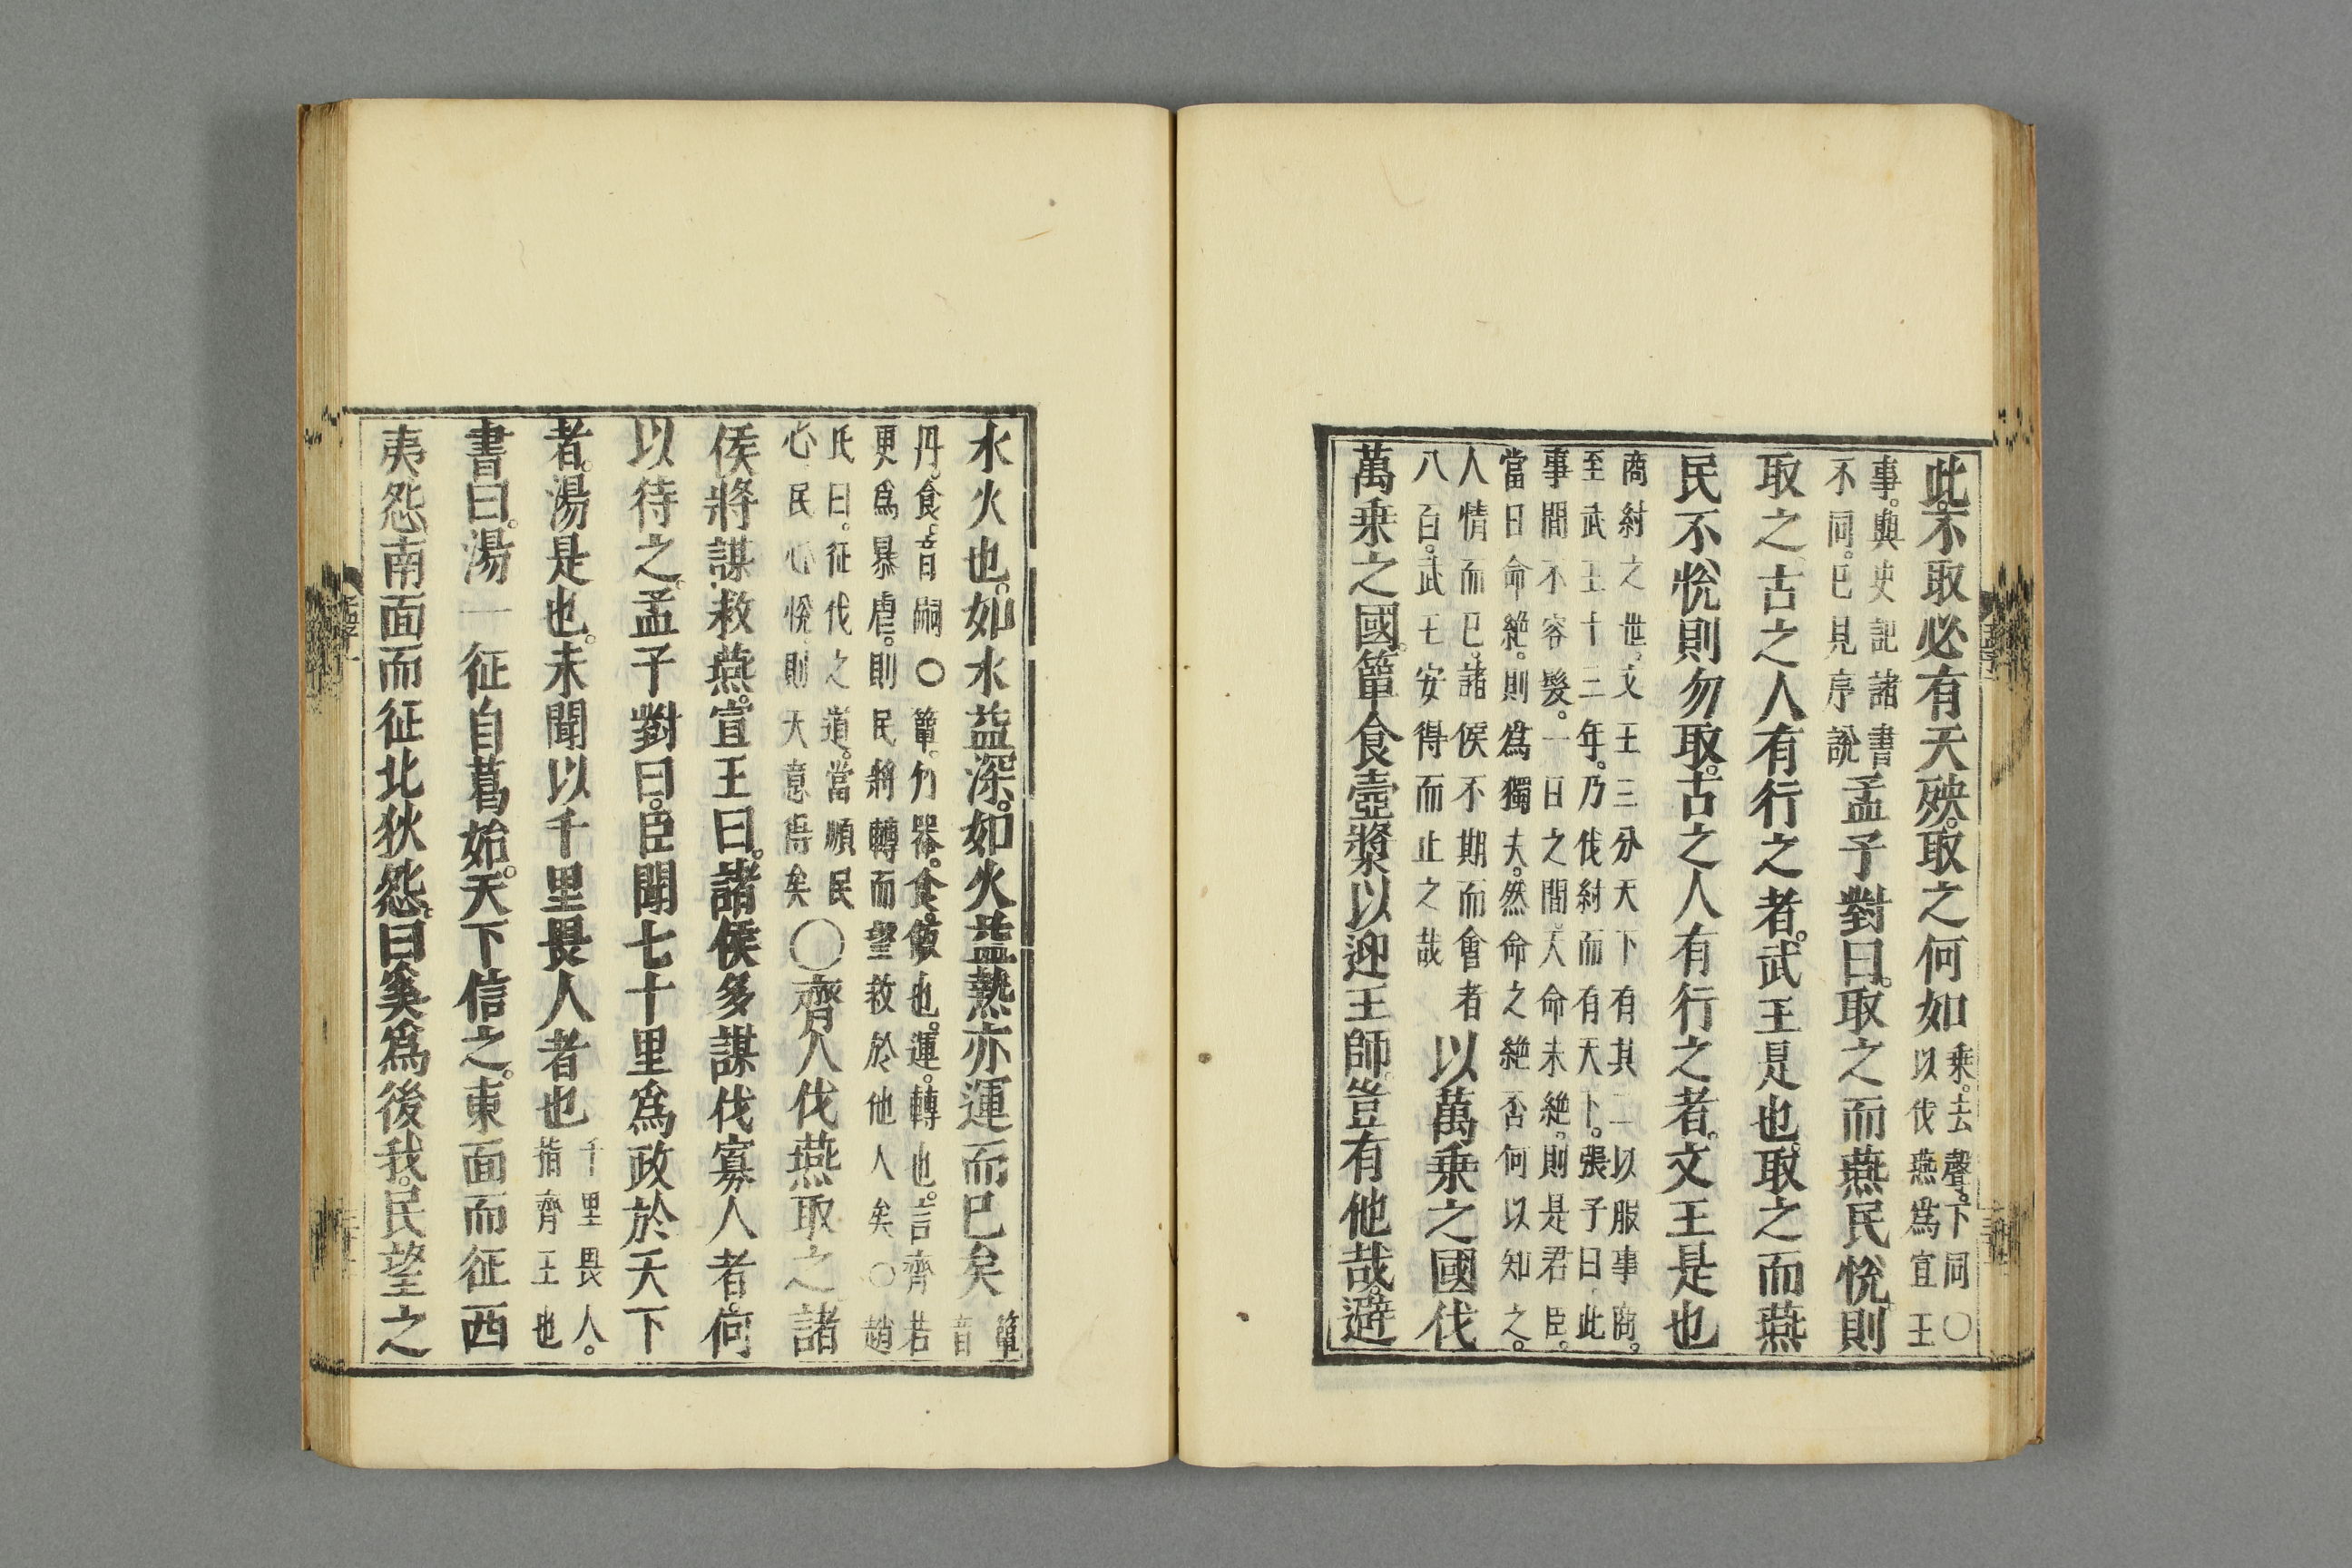 此。不取必有天殃。取之何如乘。去聲。下同○
以伐燕爲宣王
事。與史記諸書
不同。已見序說孟子對曰。取之而燕民悅。則
取之。古之人有行之者。武王是也。取之而燕
民不悅。則勿取。古之人有行之者。文王是也
商紂之世。文王三分天下有其二以服事商。
至武王十三年。乃伐紂而有天下。張子曰。此
事間不容髮。一日之間。天命未絕。則是君臣。
當日命絕。則爲獨夫。然命之絕否何以知之。
人情而已。諸侯不期而會者
八百。武王安得而止之哉以萬乘之國伐
萬乘之國。簞食壺漿以迎王師。豈有他哉。避
水火也。如水益深。如火益熱亦運而已矣簞
音
丹。食。音嗣○簞。竹器。食。飯也。運。轉也。言齊若
更爲暴虐。則民將轉而望救於他人矣○趙
氏曰。征伐之道。當順民
心民心悅則天意得矣○齊人伐燕取之諸
侯將謀救燕。宣王曰。諸侯多謀伐寡人者。何
以待之。孟子對曰。臣聞七十里爲政於天下
者。湯是也。未聞以千里畏人者也千里畏人。
指齊王也
書曰。湯一征自葛始。天下信之。東面而征西
夷怨南面而征北狄怨。曰奚爲後我。民望之